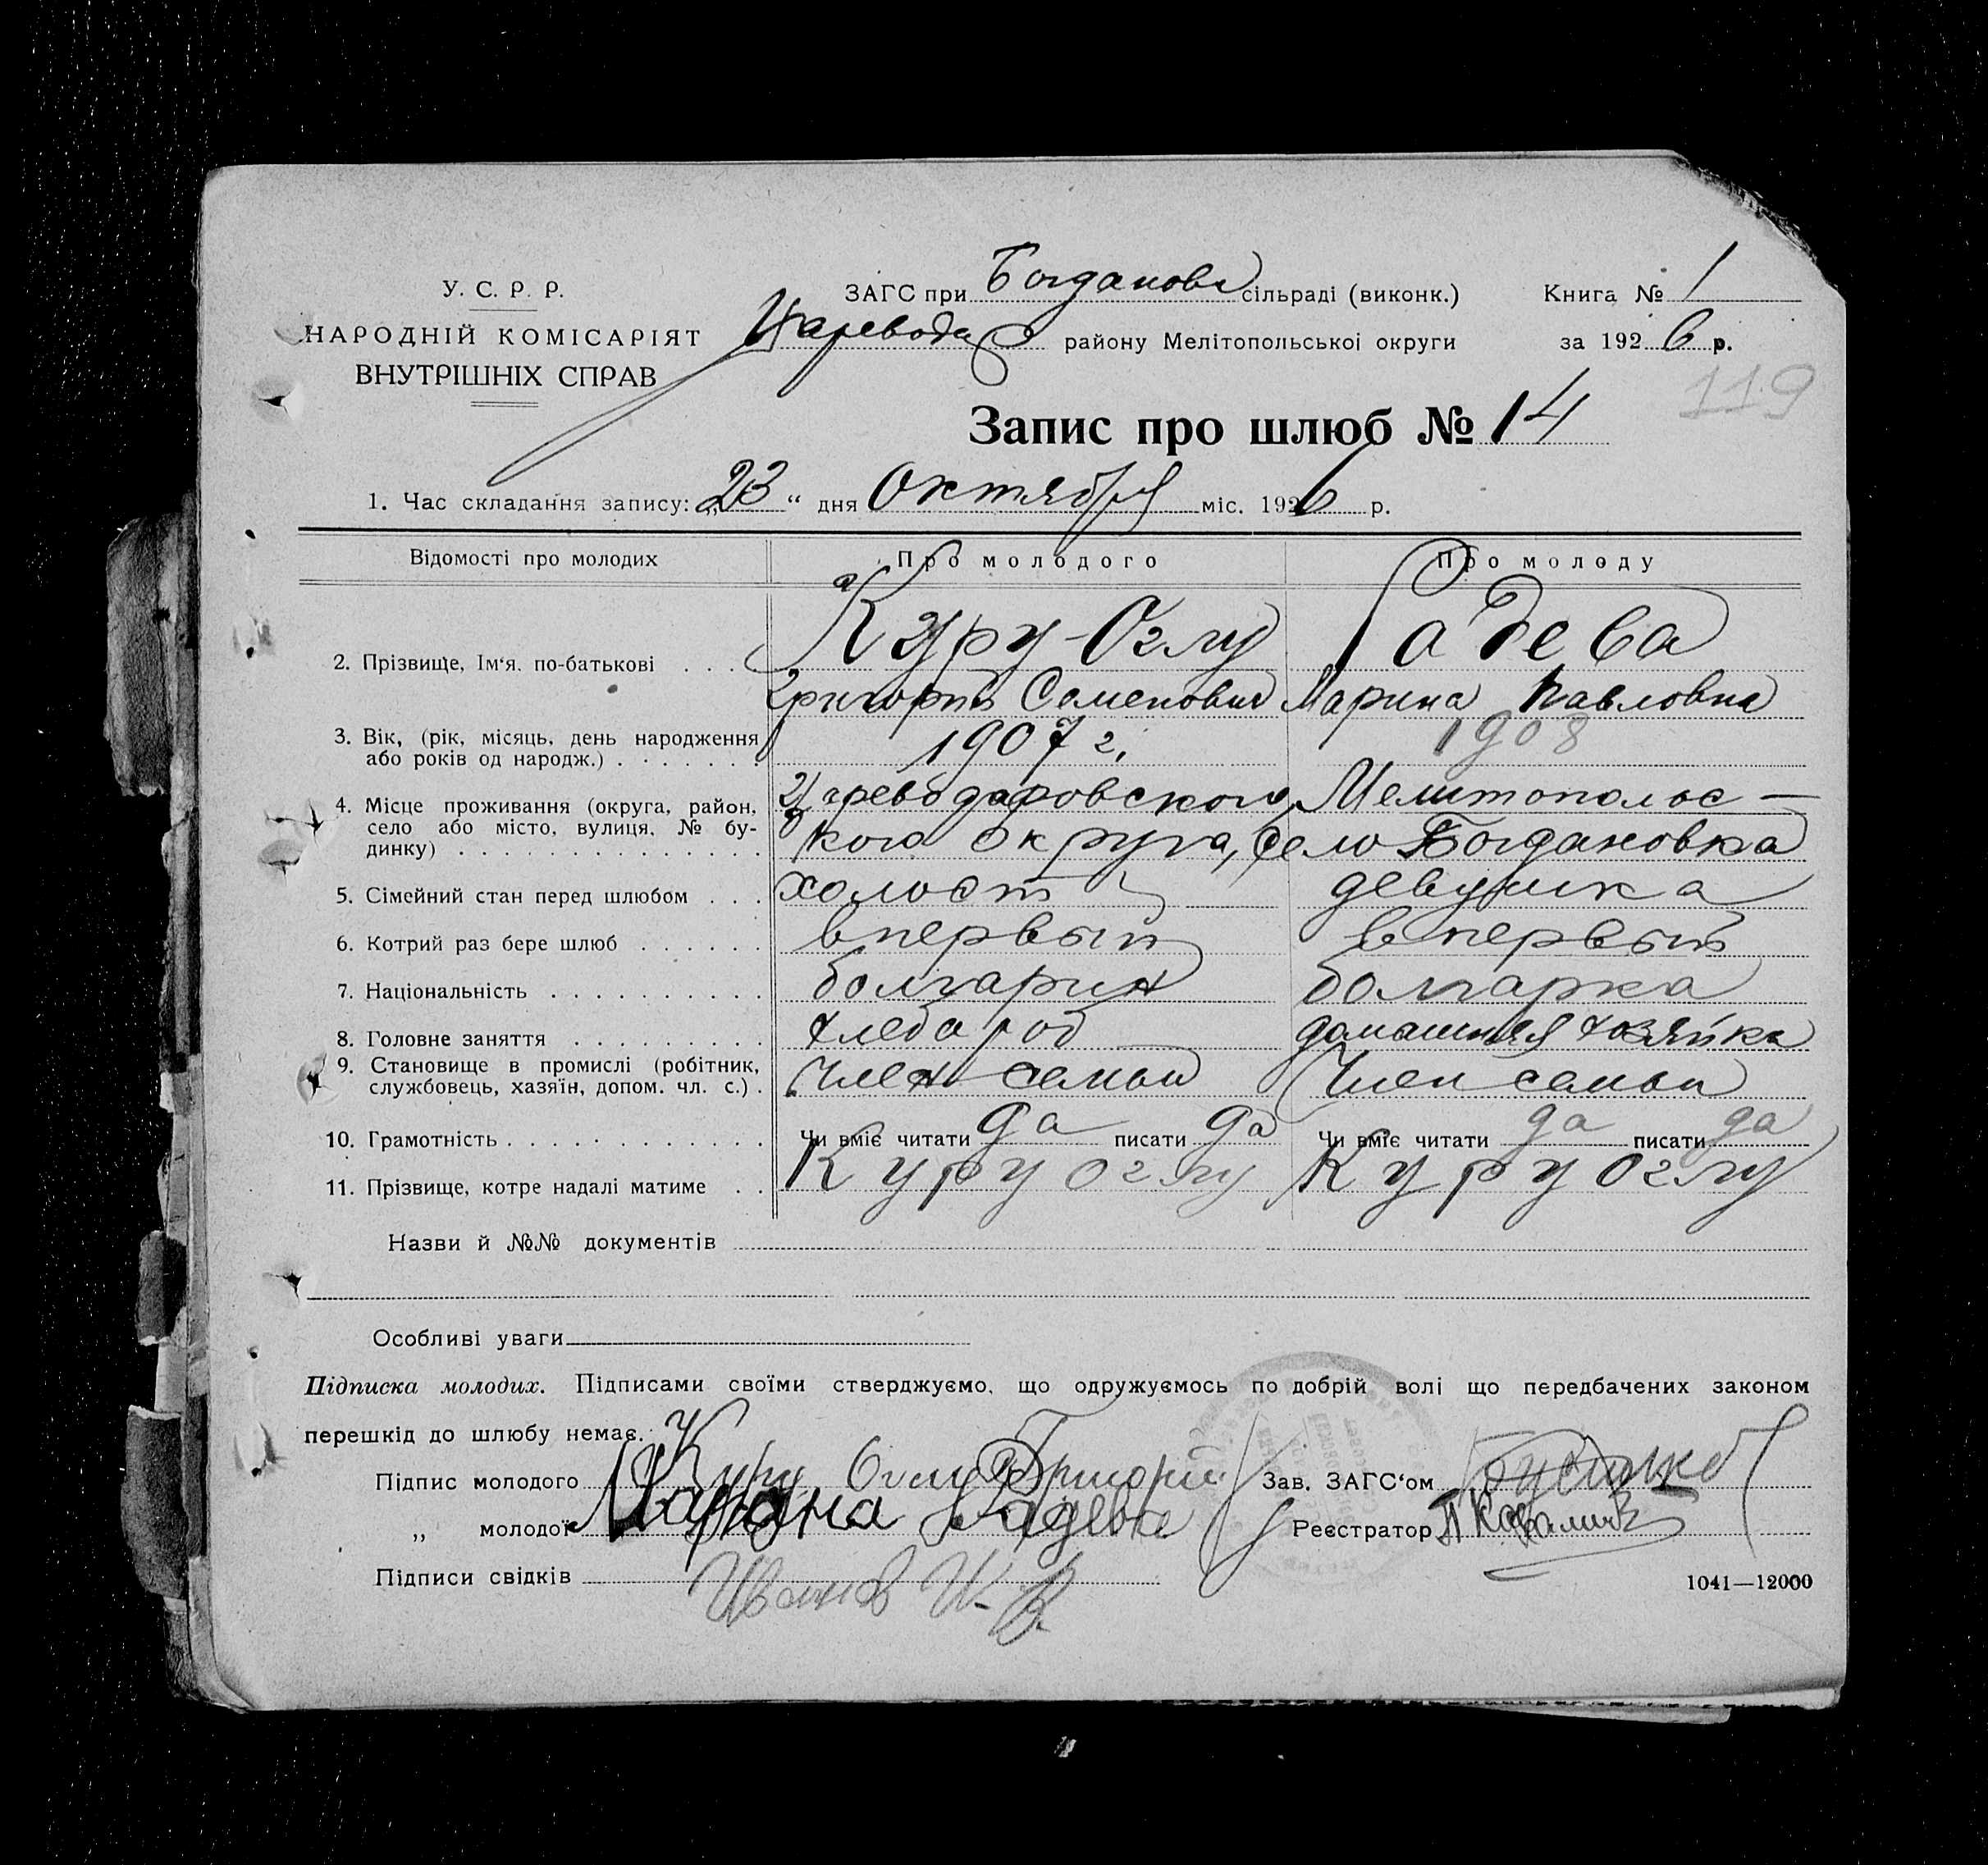 У. С. Р. Р.
НАРОДНІЙ КОМІСАРІЯТ
ВНУТРІШНІХ СПРАВ
ЗАГС при Богданов сільраді (виконк.)
Царевода району Мелітопольської округи
Книга № 1
за 1926 р.
119
Запис про шлюб № 14
1. Час складання запису: „23“ дня Октября міс. 1926 р.
Відомості про молодих Про молодого Про молоду
2. Прізвище, Ім‘я, по-батькові . . . Куру-Оглу Радева
Григорий Семенович Марина Павловна
3. Вік, (рік, місяць, день народження
або років од народж.) . . . . . . . 1907 г. 1908
4. Місце проживання (округа, район,
село або місто, вулиця, № бу-
динку) . . . . . . . . . . . . . .
Цареводаровского, Мелитопольс —
кого округа, село Богдановка
5. Сімейний стан перед шлюбом . . . холост девушка
6. Котрий раз бере шлюб . . . . . . впервый впервый
7. Національність . . . . . . . . . . болгарин болгарка
8. Головне заняття . . . . . . . . . хлебороб домашняя хозяйка
9. Становище в промислі (робітник,
службовець, хазяїн, допом. чл. с.) . Член семьи Член семьи
10. Грамотність . . . . . . . . . . . . Чи вміє читати да писати да Чи вміє читати да писати да
11. Прізвище, котре надалі матиме . . Куру Оглу Куру Оглу
Назви й №№ документів
Особливі уваги
Підписка молодих. Підписами своїми стверджуємо, що одружуємось по добрій волі що передбачених законом
перешкід до шлюбу немає.
Підпис молодого Куру Оглу Григорий Зав. ЗАГС‘ом
„ молодої Марина Радева Реєстратор
Підписи свідків Иванов И. В.
1041—12000